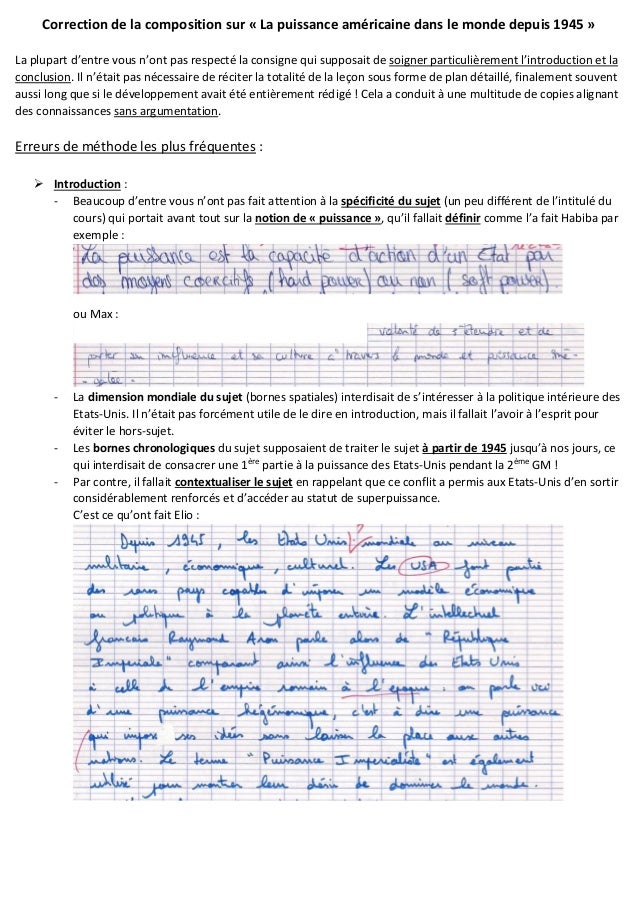 Correction de la composition sur « La puissance américaine dans le monde depuis 1945 »
La plupart d’entre vous n’ont pas respecté la consigne qui supposait de soigner particulièrement l’introduction et la
conclusion. Il n’était pas nécessaire de réciter la totalité de la leçon sous forme de plan détaillé, finalement souvent
aussi long que si le développement avait été entièrement rédigé ! Cela a conduit à une multitude de copies alignant
des connaissances sans argumentation.
Erreurs de méthode les plus fréquentes :
➢ Introduction :
- Beaucoup d’entre vous n’ont pas fait attention à la spécificité du sujet (un peu différent de l’intitulé du
cours) qui portait avant tout sur la notion de « puissance », qu’il fallait définir comme l’a fait Habiba par
exemple :
La puissance est la capacité d'action d'un Etat par
des moyens coercitifs (hard power) ou non (soft power).
ou Max :
volonté de s'étendre et de
porter son influence et sa culture à travers le monde et puissance iné-
-galée.
- La dimension mondiale du sujet (bornes spatiales) interdisait de s’intéresser à la politique intérieure des
Etats-Unis. Il n’était pas forcément utile de le dire en introduction, mais il fallait l’avoir à l’esprit pour
éviter le hors-sujet.
- Les bornes chronologiques du sujet supposaient de traiter le sujet à partir de 1945 jusqu’à nos jours, ce
qui interdisait de consacrer une 1ère partie à la puissance des Etats-Unis pendant la 2ème GM !
- Par contre, il fallait contextualiser le sujet en rappelant que ce conflit a permis aux Etats-Unis d’en sortir
considérablement renforcés et d’accéder au statut de superpuissance.
C’est ce qu’ont fait Elio :
Depuis 1945, les Etats Unis ? mondiale au niveau
militaire, économique, culturel. Les USA font partie
des rares pays capables d'imposer un modèle économique
ou politique à la planète entière. L'intellectuel
français Raymond Aron parle alors de "République
Imperiale" comparant ainsi l'influence des Etats Unis
à celle de l'empire romain à l'epoque. on parle ici
d'une puissance hégémonique, c'est à dire une puissance
qui impose ses idées sans laisser la place aux autres
nations. Le terme "Puissance Imperialiste" est également
utilisé pour montrer leur désir de dominer le monde.